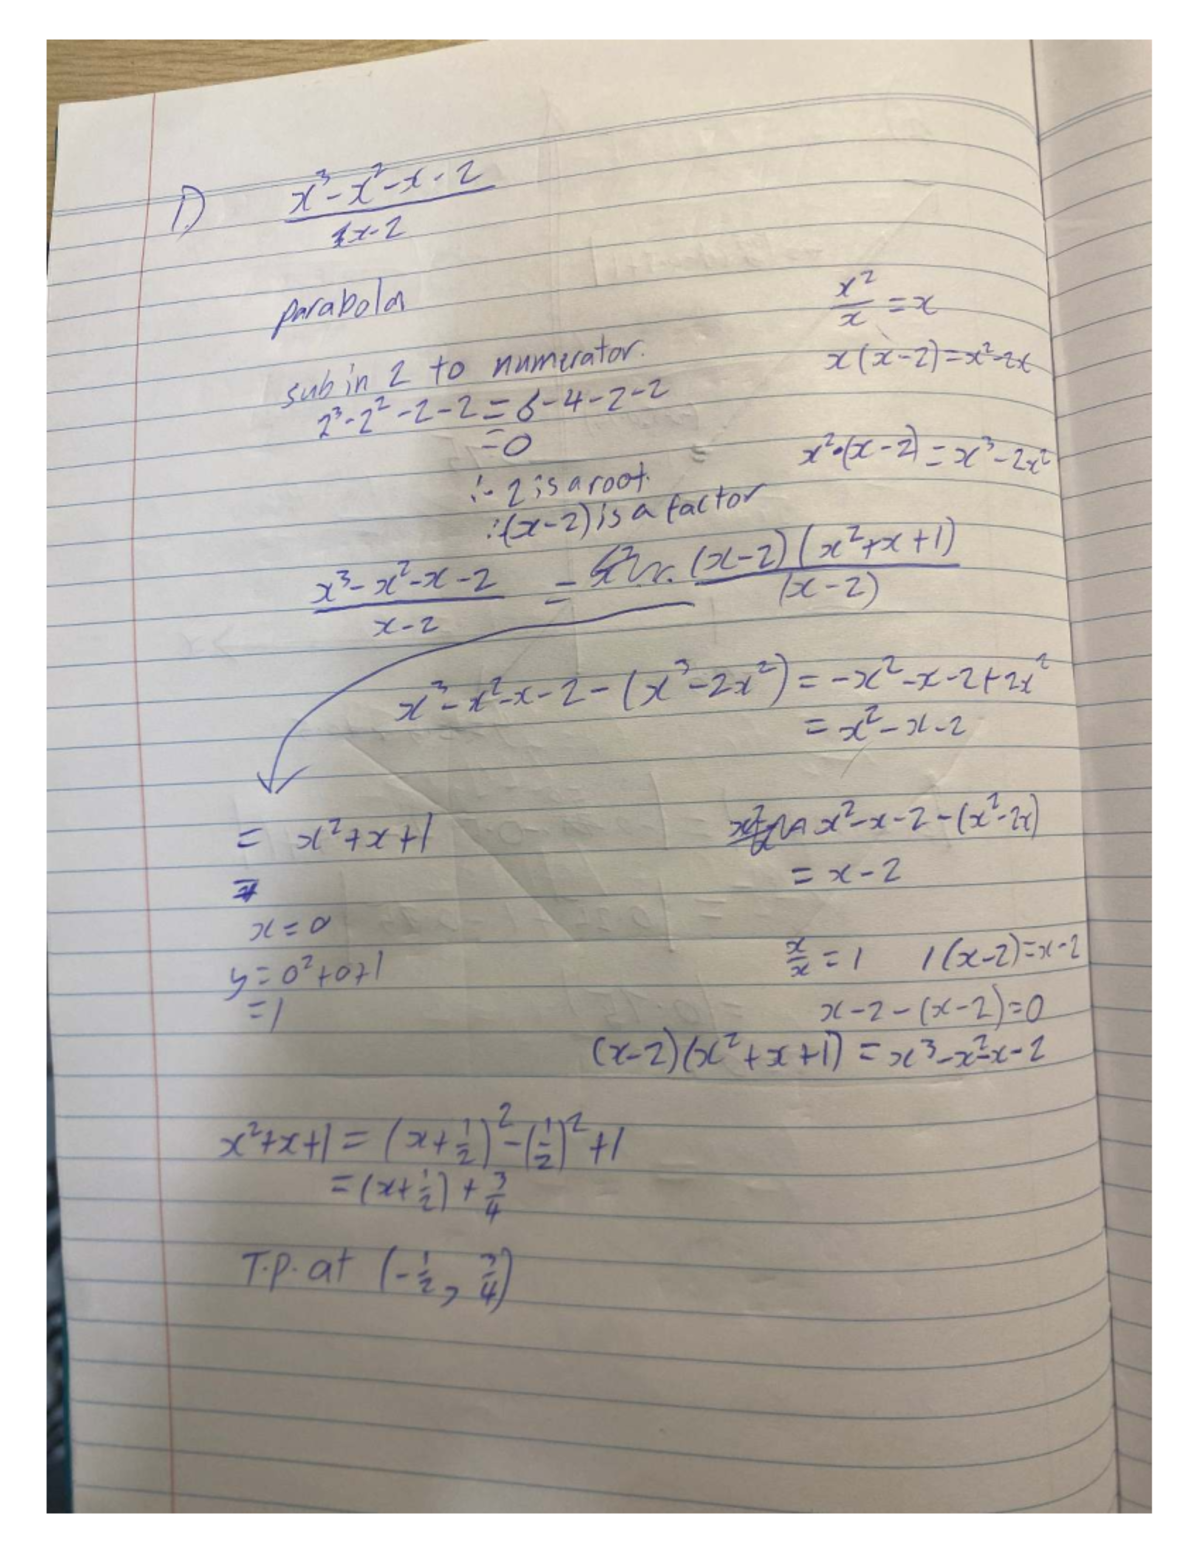 1.) x³-x²-x-2
x-2
parabola
x²/x = x
x(x-2)=x²-2x
sub in 2 to numerator.
2³-2²-2-2=8-4-2-2
=0
x²•(x-2)=x³-2x²
∴ 2 is a root.
∴(x-2) is a factor
x³-x²-x-2 / x-2 = (x-2)(x²+x+1) / (x-2)
x³-x²-x-2-(x³-2x²)=-x²-x-2+2x²
=x²-x-2
= x²+x+1
x²-x-2-(x²-2x)
= x-2
=
x=0
y=0²+0+1
=1
x/x=1 1(x-2)=x-2
x-2-(x-2)=0
(x-2)(x²+x+1)=x³-x²-x-2
x²+x+1=(x+1/2)²-(1/2)²+1
=(x+1/2)+3/4
T.P. at (-1/2, 3/4)